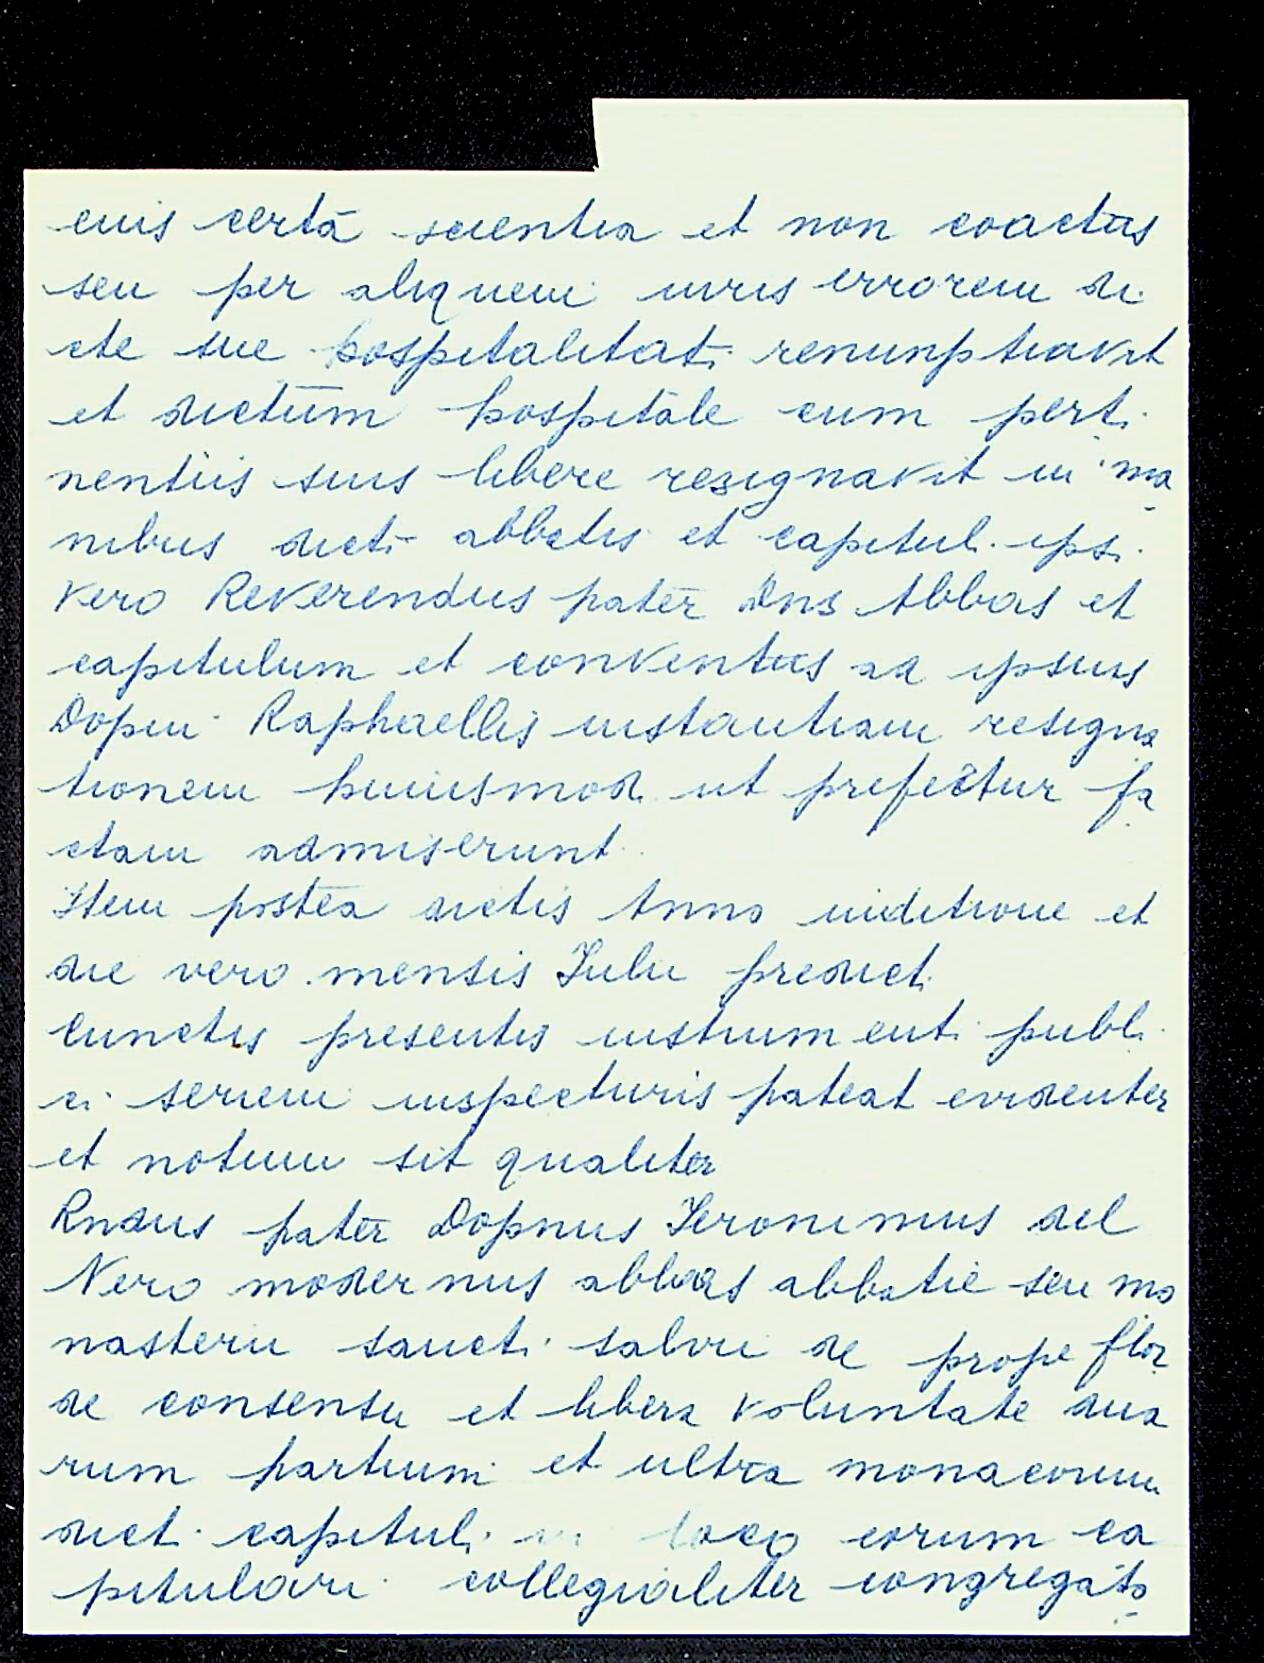 euis certa scientia et non coactus
seu per aliquem iuris errorem di
cte sue hospitalitati renunptiavit
et dictum hospitale cum perti
nentiis suis libere resignavit in ma
nibus dicti abbatis et capituli ipsi
vero Reverendus pater Dns Abbas et
capitulum et conventus ad ipsius
Dopni Raphaellis instantiam resigna
tionem huiusmodi ut prefertur fa
ctam admiserunt
Item postea dictis Anno inditione et
die vero mensis Iulii predicti
Cunctis presentis instrumenti publi
ci seriem inspecturis pateat evidenter
et notum sit qualiter
Rndus pater Dopnus Ieronimus del
Nero modernus abbas abbatie seu mo
nasterii sancti salvii de prope flor
de consensu et libera voluntate dua
rum partium et ultra monacorum
dicti capituli in loco eorum ca
pitulari collegialiter congregato